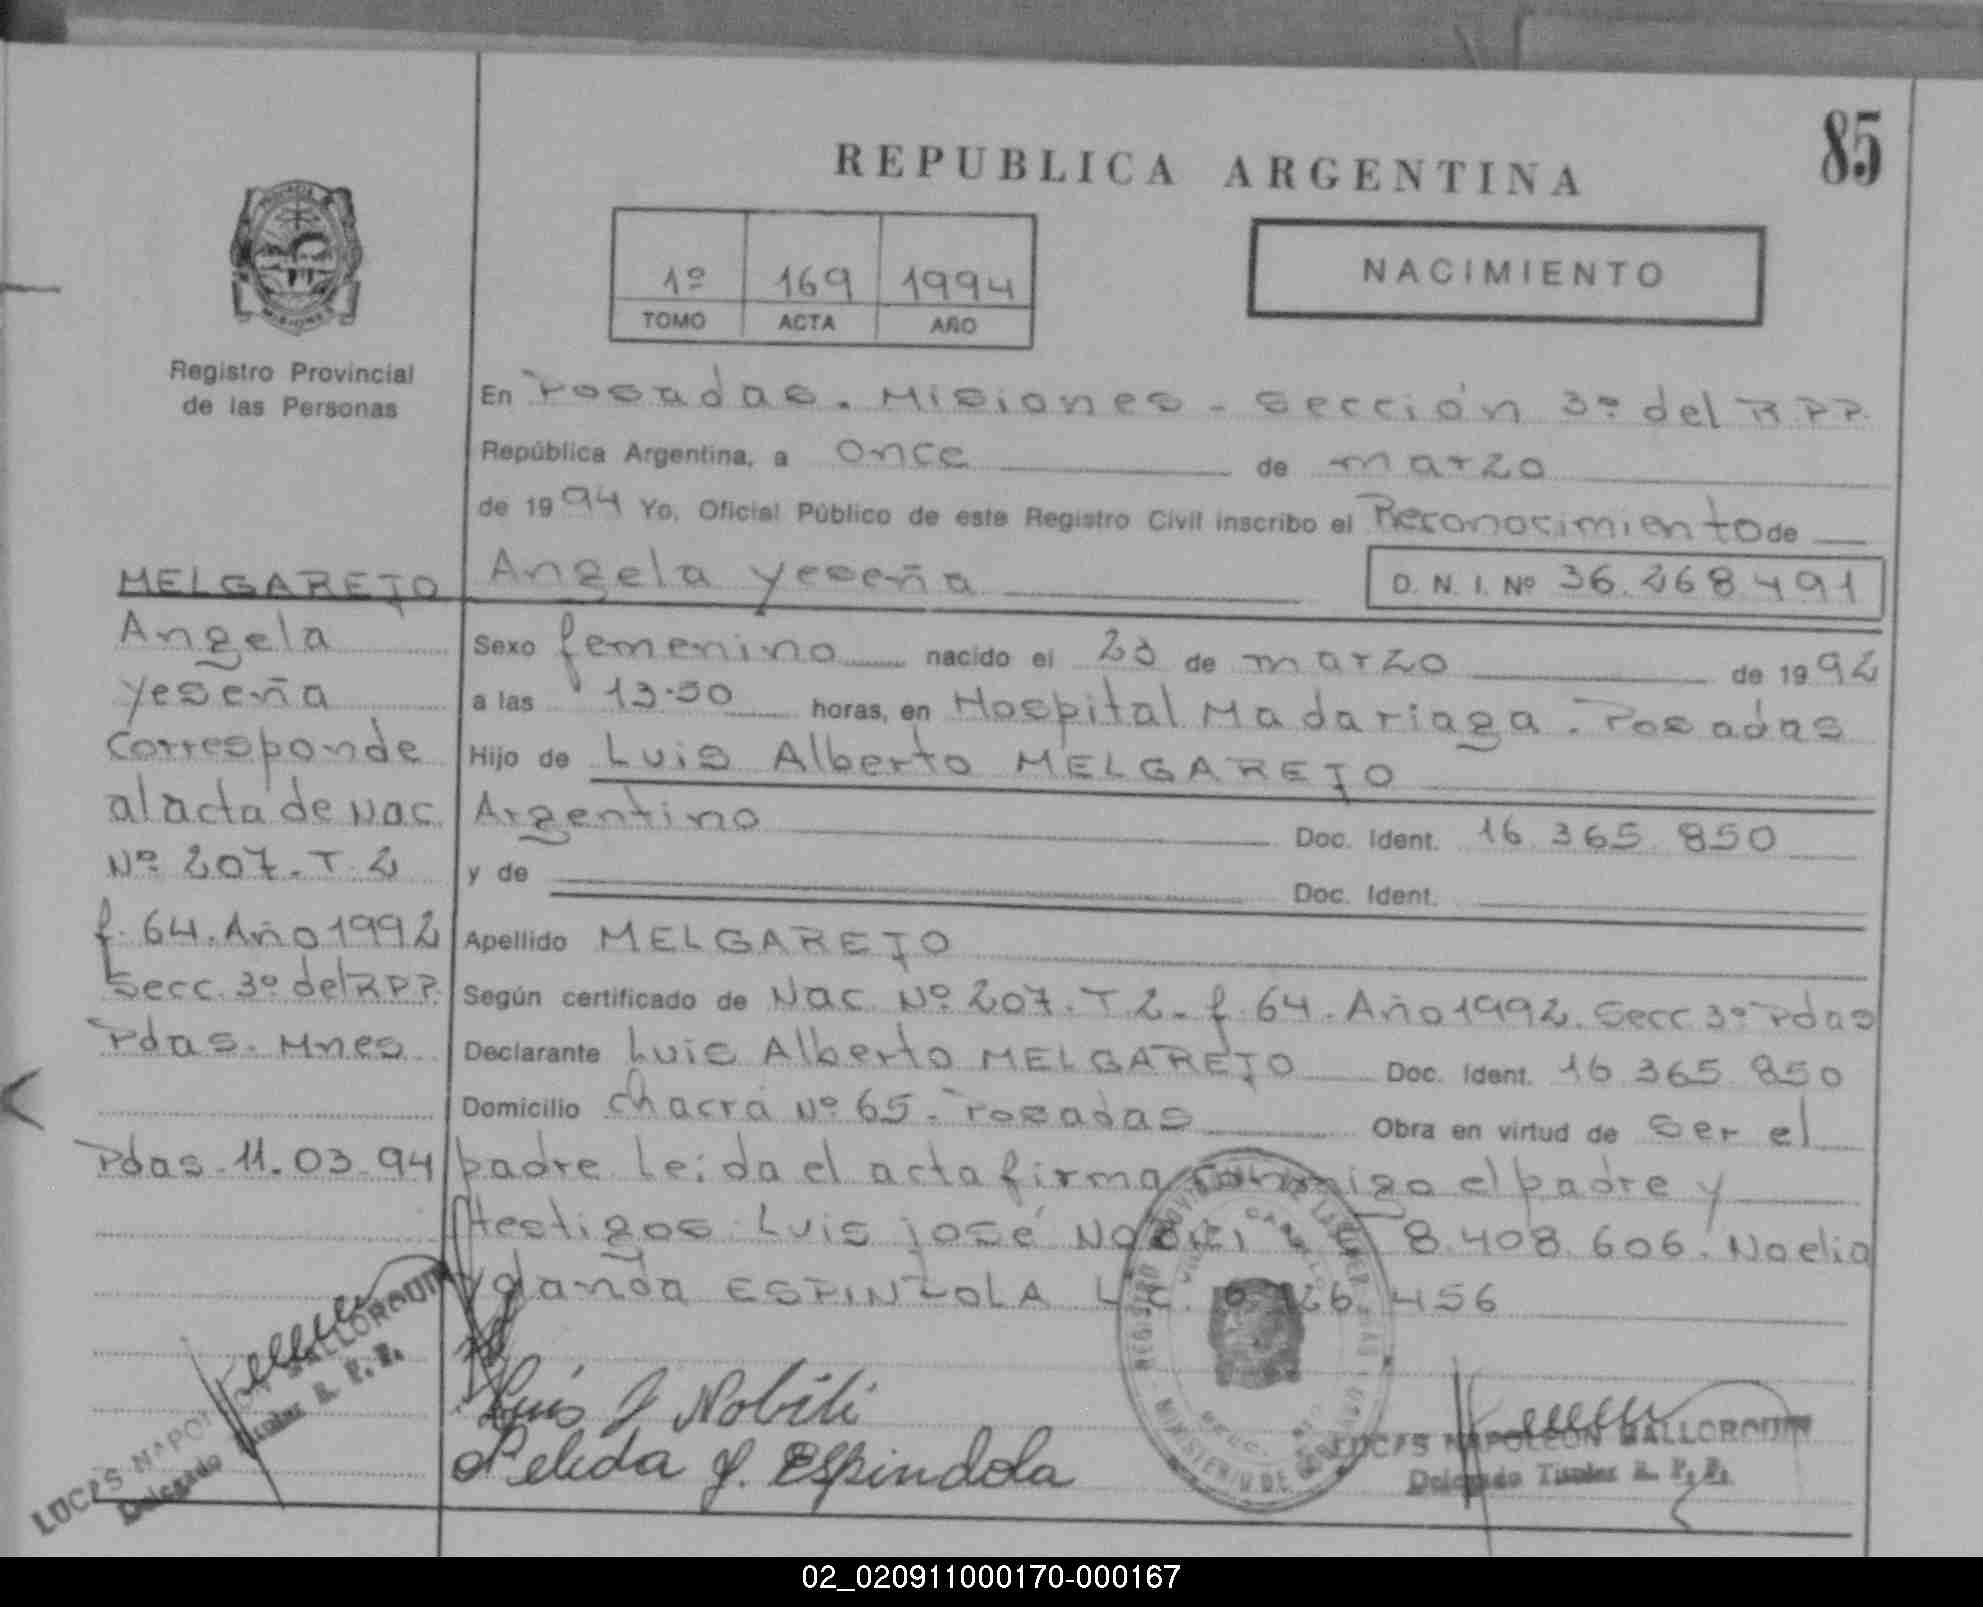 85
REPUBLICA ARGENTINA
1º 169 1994
TOMO ACTA AÑO
NACIMIENTO
Registro Provincial
de las Personas
En Posadas. Misiones - Sección 3º del R.P.P.
República Argentina, a once de marzo
de 1994 Yo, Oficial Público de este Registro Civil inscribo el Reconocimiento de
Angela Yeseña D. N. I. Nº 36.268.491
Sexo femenino nacido el 23 de marzo de 1992
a las 13.30 horas, en Hospital Madariaga. Posadas
Hijo de Luis Alberto MELGAREJO
Argentino Doc. Ident. 16.365.850
y de Doc. Ident.
Apellido MELGAREJO
Según certificado de Nac. Nº 207. T 2. f. 64. Año 1992. Secc 3º Pdas
Declarante Luis Alberto MELGAREJO Doc. Ident. 16.365.850
Domicilio chacra Nº 65. Posadas Obra en virtud de ser el
padre Leida el acta firma conmigo el padre y
testigos Luis josé 8.408.606. Noelia
Yolanda ESPINZOLA L.C. 456
MELGAREJO
Angela
Yeseña
Corresponde
al acta de Nac.
Nº 207. T. 2
f. 64. Año 1992
Secc. 3º del R.P.P.
Pdas. Mnes
Pdas. 11.03.94
Luis J Nobili
Nelida Y. Espindola
LUCAS NAPOLEON BALLORQUIN
Delegado Titular R. P. P.
LUCAS NAPOLEON BALLORQUIN
Delegado Titular R. P. P.
02_020911000170-000167